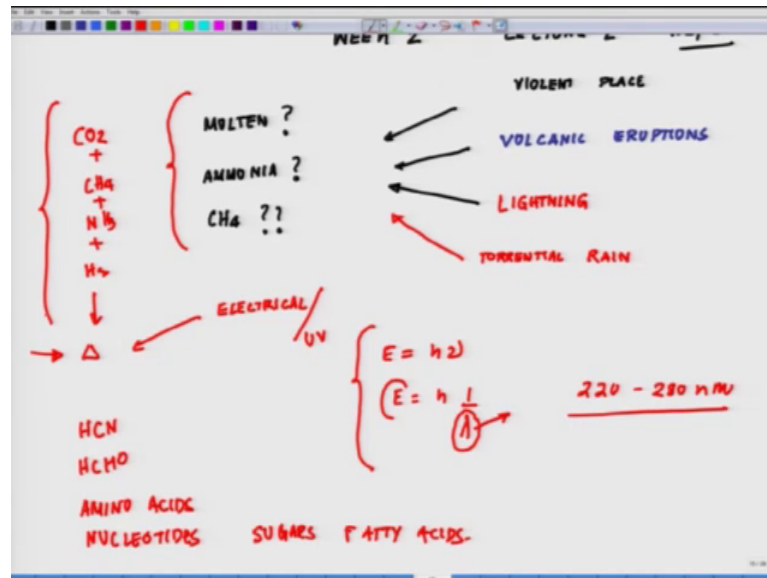 WEEK 2 LECTURE 2
VIOLENT PLACE
VOLCANIC ERUPTIONS
LIGHTNING
TORRENTIAL RAIN
MOLTEN ?
AMMONIA ?
CH4 ??
CO2
+
CH4
+
NH3
+
H2
Δ
ELECTRICAL/
UV
E = hν
E = h 1
λ
220 - 280 nm
HCN
HCHO
AMINO ACIDS
NUCLEOTIDES SUGARS FATTY ACIDS.